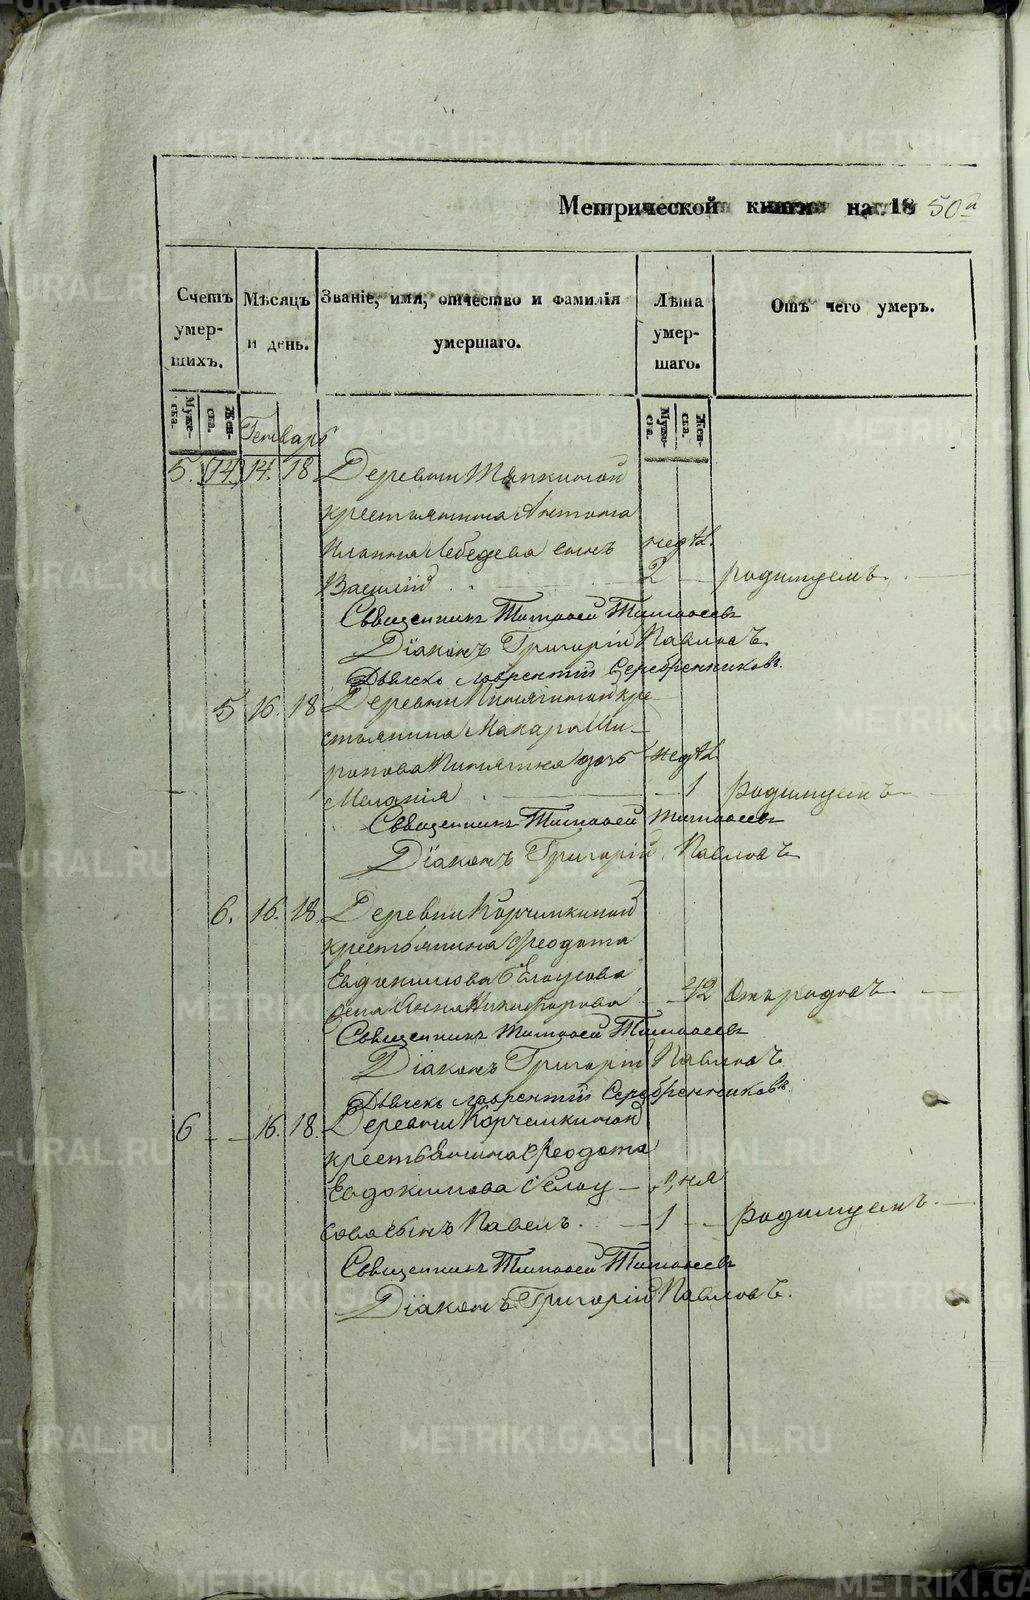 Метрической книги на 1850й
Счетъ умер-шихъ.
Мѣсяцъ и день.
Званіе, имя, отчество и фамилія умершаго.
Лѣта умер-шаго.
Отъ чего умеръ.
Муже-ска.
Жен-ска.
Генварь
Муже-ска.
Жен-ска.
5. 14. 18 Деревни
крестьянина Антона
Лебедева сынъ недѣл.
Василій 2 родимцемъ.
Священникъ Тимофей Тимофеевъ
Діаконъ Григорій Павловъ.
Дьячекъ Лаврентій Серебренниковъ.
5 16. 18 Деревни кре
стьянина Макара Ми-
ронова дочь недѣл.
Меланія 1 родимцемъ
Священникъ Тимофей Тимофеевъ
Діаконъ Григорій Павловъ
6. 16. 18. Деревни Корчемкиной
крестьянина Феодота
Евдокимова Бѣлоусова
жена Анна Никифорова 42 отъ родовъ
Священникъ Тимофей Тимофеевъ
Діаконъ Григорій Павловъ
Дьячекъ Лаврентій Серебренниковъ
6 16. 18. Деревни Корчемкиной
крестьянина Феодота
Евдокимова Бѣлоу- дня
сова сынъ Павелъ. 1 родимцемъ.
Священникъ Тимофей Тимофеевъ
Діаконъ Григорій Павловъ.
METRIKI.GASO-URAL.RU